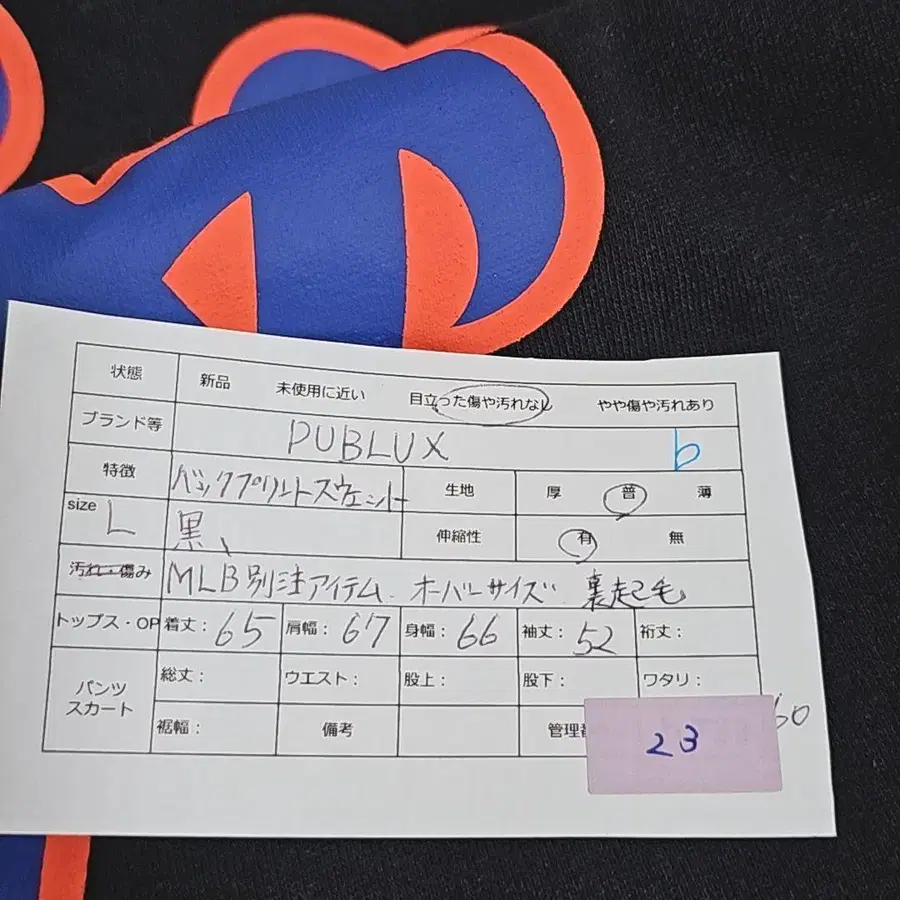 状態 新品 未使用に近い 目立った傷や汚れなし やや傷や汚れあり
ブランド等 PUBLUX b
特徴 バックプリントスウェット 生地 厚 普 薄
size L 黒、 伸縮性 有 無
汚れ・傷み MLB別注アイテム. オーバーサイズ 裏起毛
トップス・OP 着丈: 65 肩幅: 67 身幅: 66 袖丈: 52 裄丈:
パンツ スカート 総丈: ウエスト: 股上: 股下: ワタリ:
裾幅: 備考 管理 23